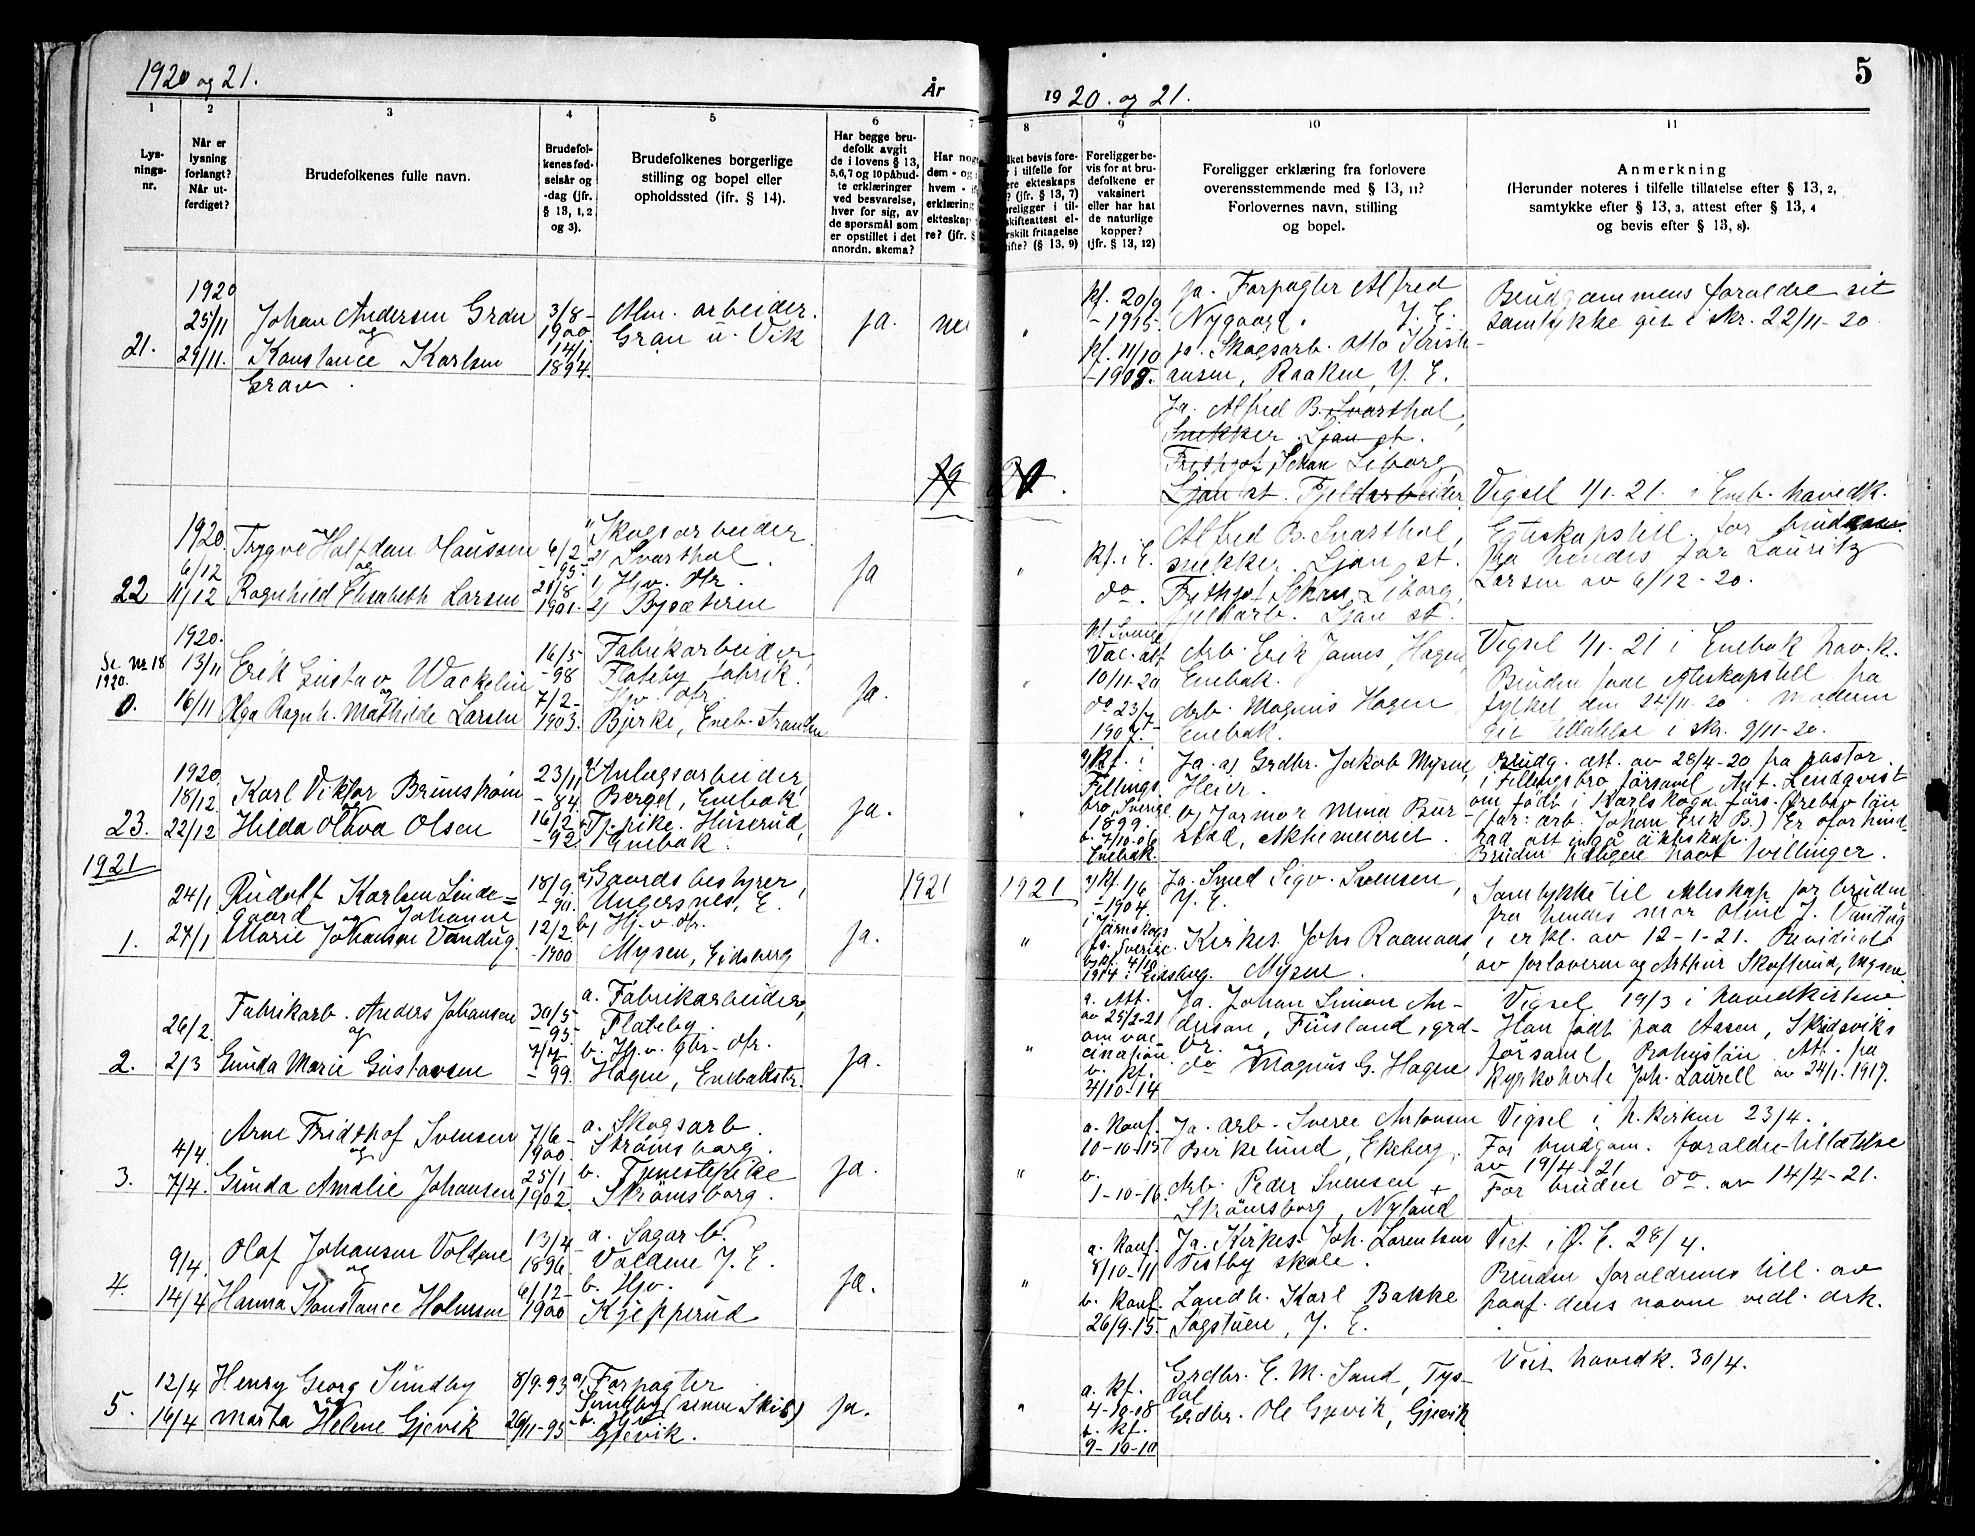 1920 og 21.
År
1920. og 21.
5
1
2
3
4
5
6
7
8
9
10
11
Lys-
nings-
nr.
Når er
lysning
forlangt?
Når ut-
ferdiget?
Brudefolkenes fulle navn.
Brudefol-
kenes fød-
selsår og
-dag (jfr.
§ 13, 1, 2
og 3).
Brudefolkenes borgerlige
stilling og bopel eller
opholdssted (ifr. § 14).
Har begge bru-
defolk avgit
de i lovens § 13,
5,6,7 og 10 påbud-
te erklæringer
ved besvarelse,
hver for sig, av
de spørsmål som
er opstillet i det
anordn. skema?
Foreligger be-
vis for at bru-
defolkene er
vaksinert
eller har hat
de naturlige
kopper?
(jfr. § 13, 12)
Foreligger erklæring fra forlovere
overensstemmende med § 13, 11?
Forlovernes navn, stilling
og bopel.
Anmerkning
(Herunder noteres i tilfelle tillatelse efter § 13, 2,
samtykke efter § 13, 3, attest efter § 13, 4
og bevis efter § 13, 8).
21.
1920
25/11
29/11.
Johan Andersen Gran
og
Konstance Karlsen
Gran
3/8-
1900.
14/1
1894.
Alm. arbeider.
Gran u. Vik
ja.
kf. 20/9
-1915.
kf. 11/10
-1908.
ja. Forpagter Alfred
Nygaard. Y. E.
ja. Skogsarb. Otto Kristi-
ansen, Raaken, Y. E.
Brudgommens foreldre sit
samtykke git i skr. 22/11-20.
Ja. Alfred B. Svarthol,
Snekker. Ljan st.
Ljan st. Fjeldarbeider
22
1920.
6/12
11/12
Trygve Halfdan Hanssen
og
Ragnhild Elisabeth Larsen
6/2
-95.
21/8
1901.
Skogsarbeider
Svarthol.
Hjv. dtr.
Bysæteren
ja
"
kf. i E.
do.
Alfred B. Svarthol,
snekker. Ljan st.
fjeldarb. Ljan st.
Vigsel 1/1. 21. i Eneb. hovedk.
Egteskapstill. for
fra hendes far Lauritz
Larsen av 6/12-20.
Se nr 18
1920.
0.
1920.
13/11
16/11
Erik Gustav Wackelin
og
Olga Ragnh. Mathilde Larsen
16/5
-98
7/2-
1903.
Fabrikarbeider
Flateby fabrik.
Hjv. dtr.
Bjerke, Eneb.
ja.
kf Sverige
Vac. att
10/11-20
do 23/7
1907.
Arb. Erik James Hagen,
Enebak.
Arb. Magnus Hagen
Enebak.
Vigsel 1/1. 21 i Enebak hov. k.
Bruden faar Ekteskapstill fra
fylket den 24/11. 20. Moderen
git tillatelse i skr. 9/11-20.
23.
1920
18/12
22/12
Karl Viktor Brunstrøm
og
Hilda Olava Olsen
23/11
-84
16/2
-92
Anlegsarbeider
Berget, Enebak
Tj.pike. Huserud,
Enebak.
ja.
Fellings
bro Sverige
1899.
b. 7/10-06
Enebak
Ja. a) Grdbr. Jakob Mysen,
Heier.
stad, Aktiemeieriet.
Brudg. att. av 28/4-20 fra pastor
i Fellingsbro församl. Ant. Lindqvist
om född i Karlskoga förs. Örebro län
(far: arb. Johan Erik B.) Er oforhind-
rad att ingå äktskap.
Bruden tidligere havt tvillinger.
1921
1921
1921
1.
24/1
27/1
Rudolf Karlsen Linde=
gaard og Johanne
Marie Johansen Vandug.
18/9.
-90.
12/2
-1900
Gaardsbestyrer,
Ungersnes, E.
b) Hj.v. dtr.
Mysen, Eidsberg
ja.
"
a) kf. 1/6
-1904.
i Järnskogs
fs. Sverige.
b. kf. 4/10
1914 i Eidsberg.
Ja. Smed Sigv. Svensen,
Y. E.
Kirkes. Johs Raanaas,
Mysen.
Samtykke til ekteskap for bruden
fra hendes mor Oline J. Vandug
i erkl. av 12-1-21.
av forloveren og Arthur Skofterud, Mysen
2.
26/2.
2/3
Fabrikarb. Anders Johansen
og
Gunda Marie Gustavsen
30/5
-95-
7/7
-99.
a. Fabrikarbeider,
Flateby.
b. Hj.v. gbr. dtr.
Hagen, Enebakstr.
ja.
"
a. Att.
av 25/2-21
om vac-
cination
b. kf.
4/10-14
Ja. Johan Simon An-
dersen, Fiusland, grd-
br. og
do Magnus G. Hagen
Vigsel 19/3 i hovedkirken
Han født paa Aasen, Skredsviks
församl. Bohuslän. Att. fra
Kyrkoherde Joh. Laurell av 24/1. 1917.
3.
4/4
7/4.
Arne Fridthof Svensen
og
Gunda Amalie Johansen
7/6-
1900.
25/1
1902.
a. Skogsarb.
Strømsborg.
b. Tjenestepike
Strømsborg.
ja.
"
a. Konf.
10-10-15
b.
1-10-16
Ja. arb. Sverre Antonsen
Birkelund, Ekeberg,
Arb. Peder Svensen
Strømsborg, Nyland
Vigsel i h. kirken 23/4.
For brudgom. foreldre-tillatelse
av 19/4-21
For bruden do. av 14/4-21.
4.
9/4.
14/4
Olaf Johansen Volden
og
Hanna Konstance Holmsen
13/4
1896.
6/12-
1900
a. Sagarb.
Voldene Y. E.
b. Hjv.
Kjepperud
ja.
"
a. Konf.
8/10-11
b. Konf.
26/9-15.
Ja. Kirkes. Joh. Lorentsen
Vestby skole.
Landh. Karl Bakke
Sagstuen, Y. E.
Viet i Ø. E. 28/4.
Bruden foreldrenes till. av
paaf. deres navne vedl. ark.
5.
12/4
16/4
Henry Georg Sundby
og
Marta Helene Gjevik
8/9-93
26/11-95
a) Forpagter
Sundby
b. Hjv
Gjevik.
ja.
"
a. kf.
4-10-08
b. kf.
9-10-10
Grdbr. E. M. Sand, Tys-
dal
Grdbr. Ole Gjevik, Gjevik
Viet hovedk. 30/4.